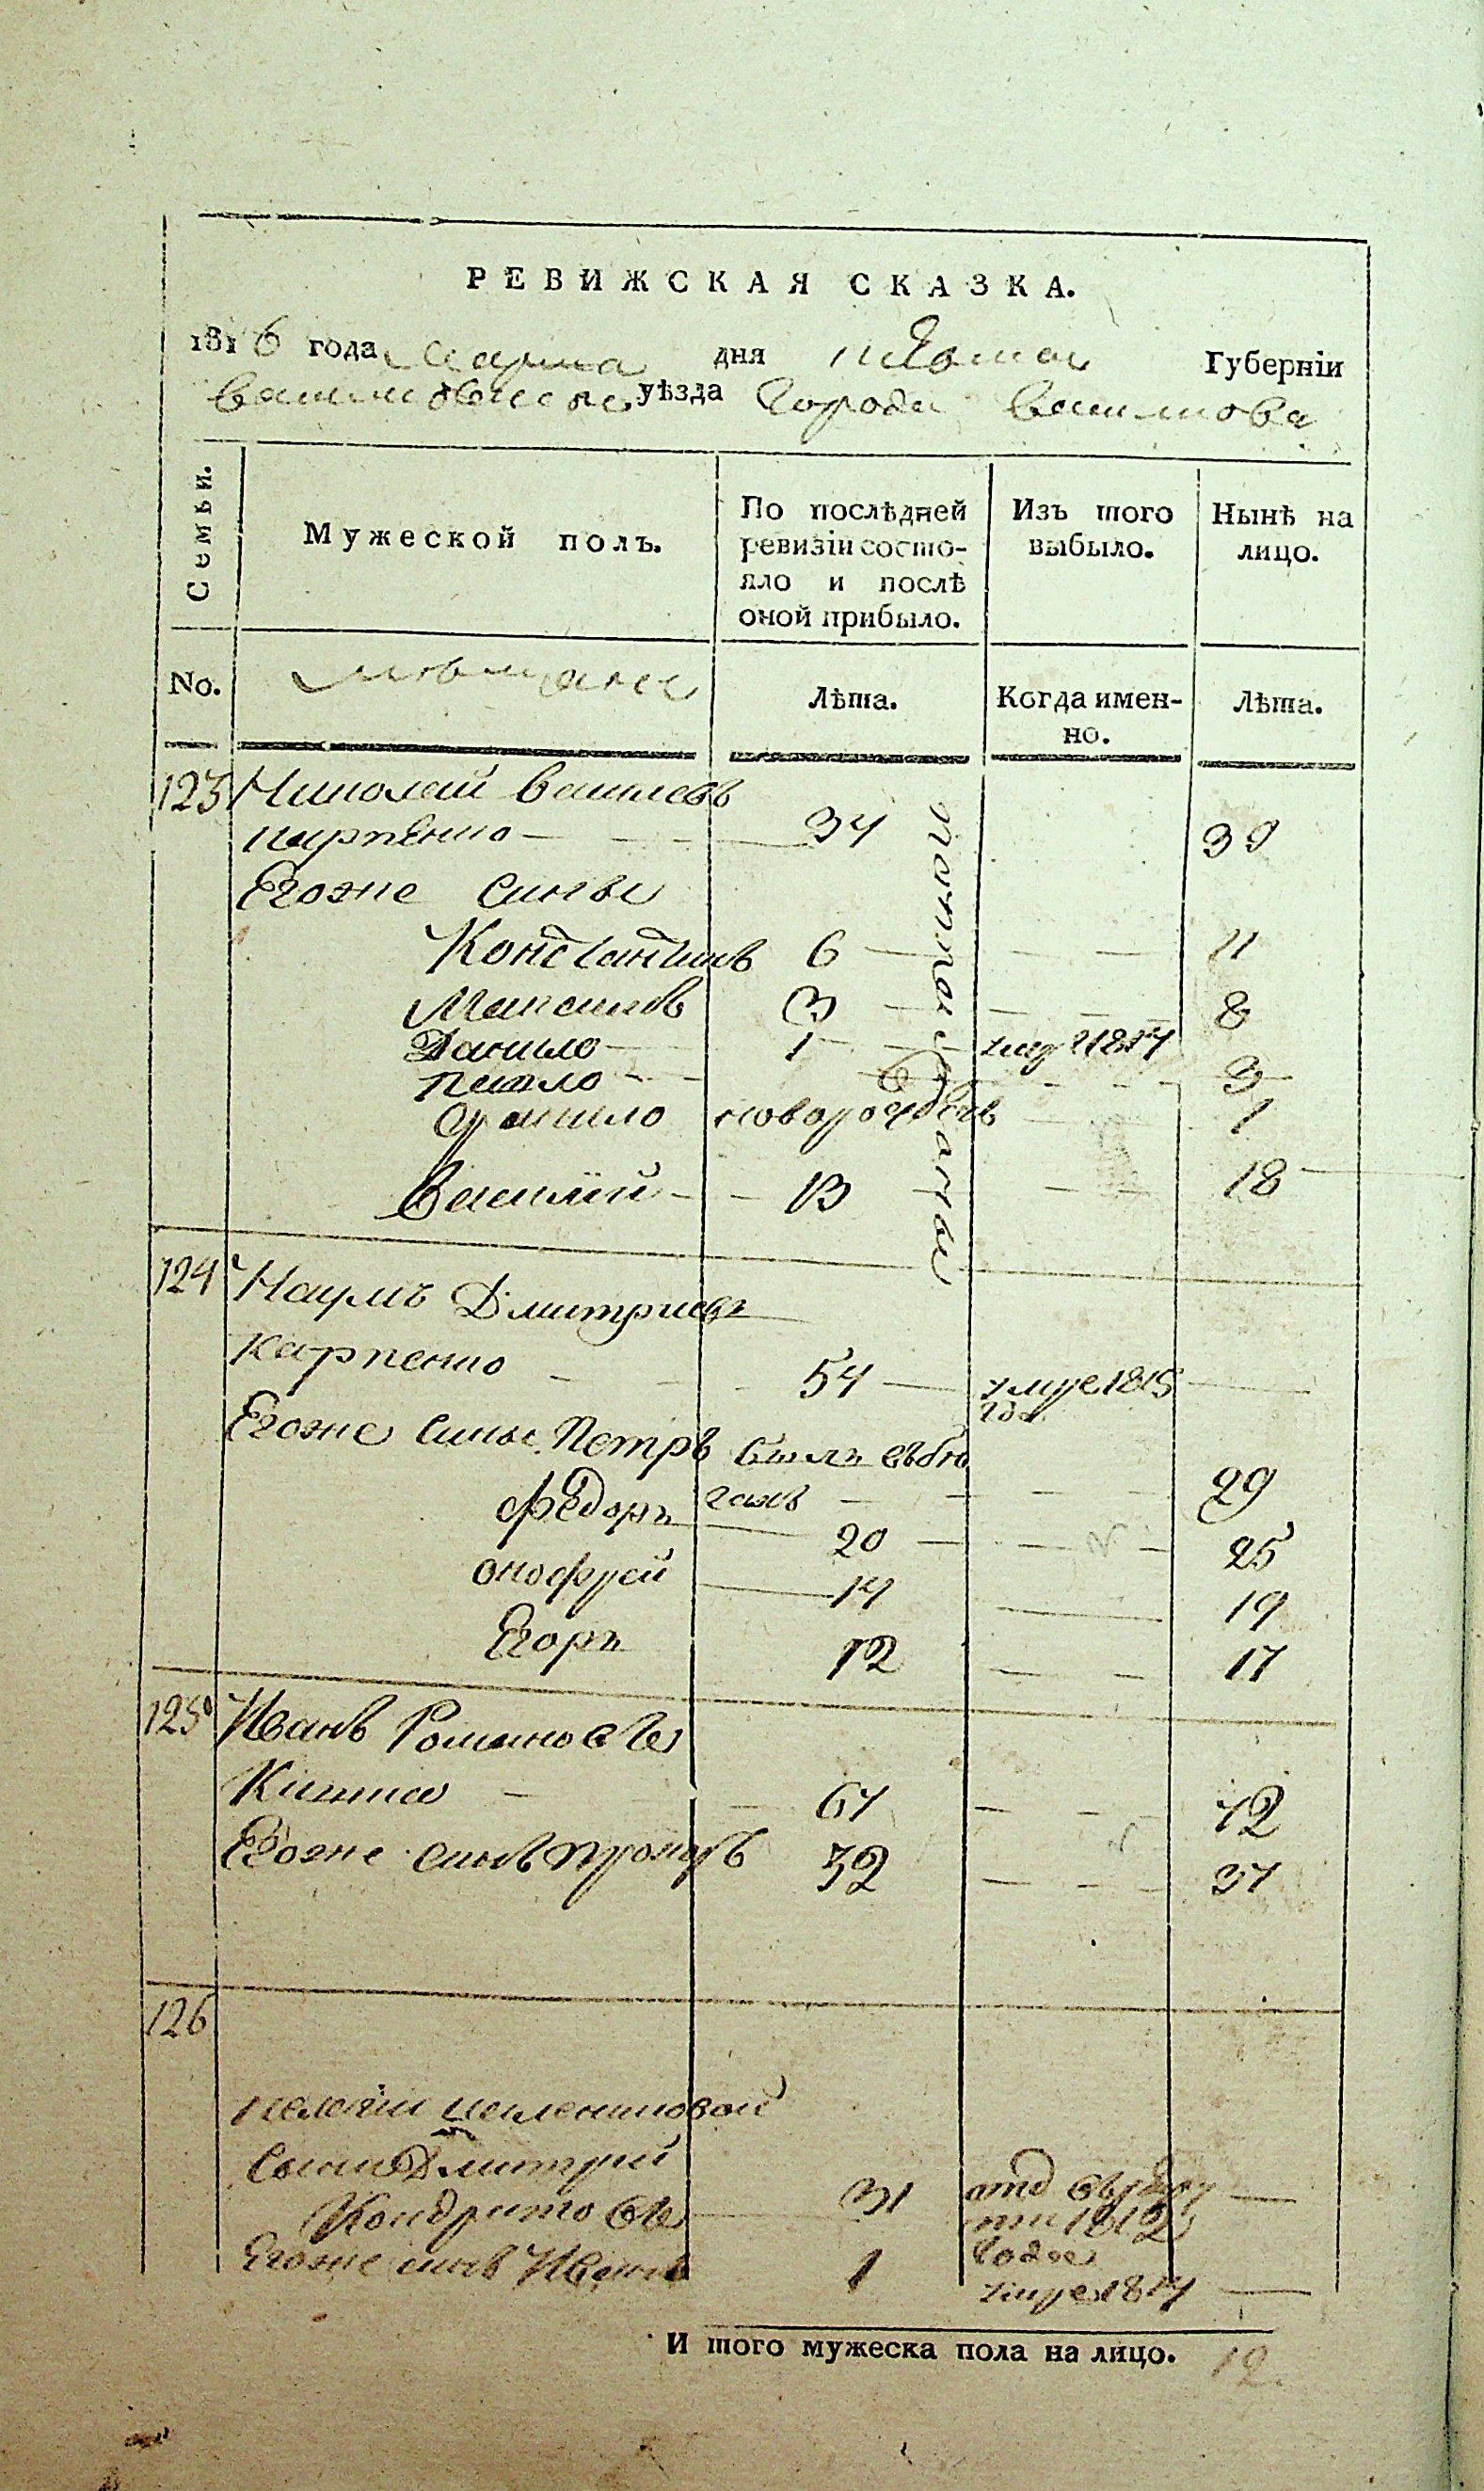 РЕВИЖСКАЯ СКАЗКА.
1816 года марта дня Губерніи
уѣзда города
Семьи.
Мужеской полъ.
По послѣдней ревизіи состо-
яло и послѣ
оной прибыло.
Изъ того
выбыло.
Нынѣ на
лицо.
No.
мѣщане
Лѣта.
Когда имен-
но.
Лѣта.
123 Николай Васильевъ
карпенко 34 39
Егоже сыны
Константинъ 6 11
Максимъ 3 8
Данило 1 1814
Павло 3
новорожденъ 1
Василій 13 18
124 Наумъ Дмитриевъ
карпенко 54 умре 1815
года
Егоже сыны Петръ былъ въ бѣ
гахъ 29
Федоръ 20 25
Онофрей 14 19
Егоръ 12 17
125 Иванъ Романовъ
67 72
Егоже сынъ Прохоръ 32 37
126
сынъ Дмитрій
Кондратовъ 31 отд
1812
года
Егоже сынъ Иванъ 1 умре 1814
И того мужеска пола на лицо. 12.